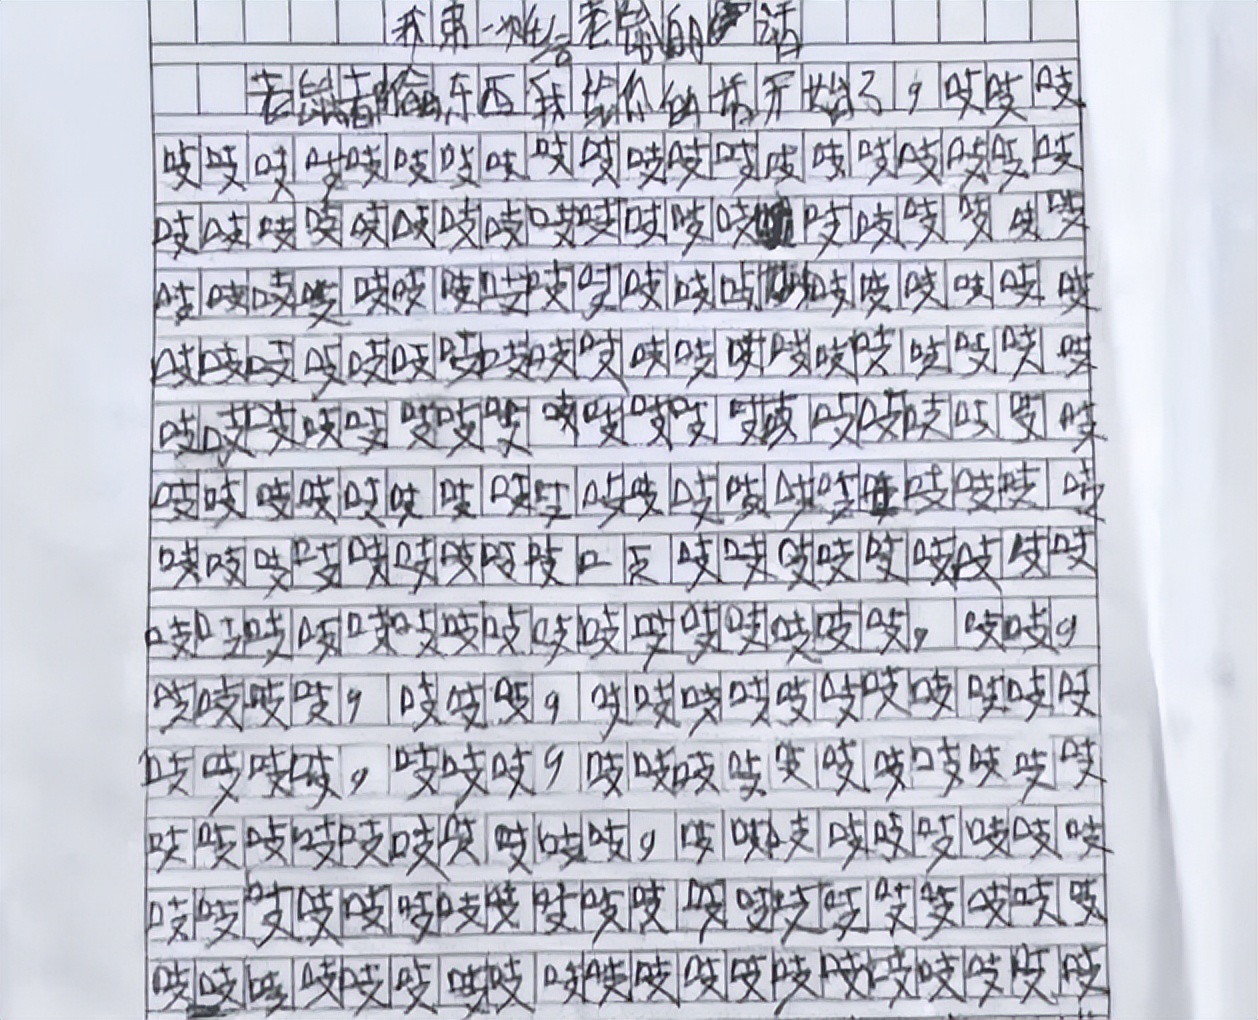 我第一次给老鼠的话
老鼠偷东西我给你的话开始了，吱吱吱
吱吱吱吱吱吱吱吱吱吱吱吱吱吱吱吱吱吱吱吱
吱吱吱吱吱吱吱吱吱吱吱吱吱吱吱吱吱吱吱
吱吱吱吱吱吱吱吱吱吱吱吱吱吱吱吱吱吱吱
吱吱吱吱吱吱吱吱吱吱吱吱吱吱吱吱吱吱吱吱
吱吱吱吱吱吱吱吱吱吱吱吱吱吱吱吱吱吱吱吱
吱吱吱吱吱吱吱吱吱吱吱吱吱吱吱吱吱吱吱
吱吱吱吱吱吱吱吱吱口支吱吱吱吱吱吱吱吱吱
吱吱吱吱吱吱吱吱吱吱吱吱吱吱吱吱，吱吱，
吱吱吱吱，吱吱吱，吱吱吱吱吱吱吱吱吱吱吱
吱吱吱吱，吱吱吱，吱吱吱吱吱吱吱吱吱吱吱
吱吱吱吱吱吱吱吱吱吱，吱吱吱吱吱吱吱吱吱
吱吱吱吱吱吱吱吱吱吱吱吱吱吱吱吱吱吱吱吱
吱吱吱吱吱吱吱吱吱吱吱吱吱吱吱吱吱吱吱吱